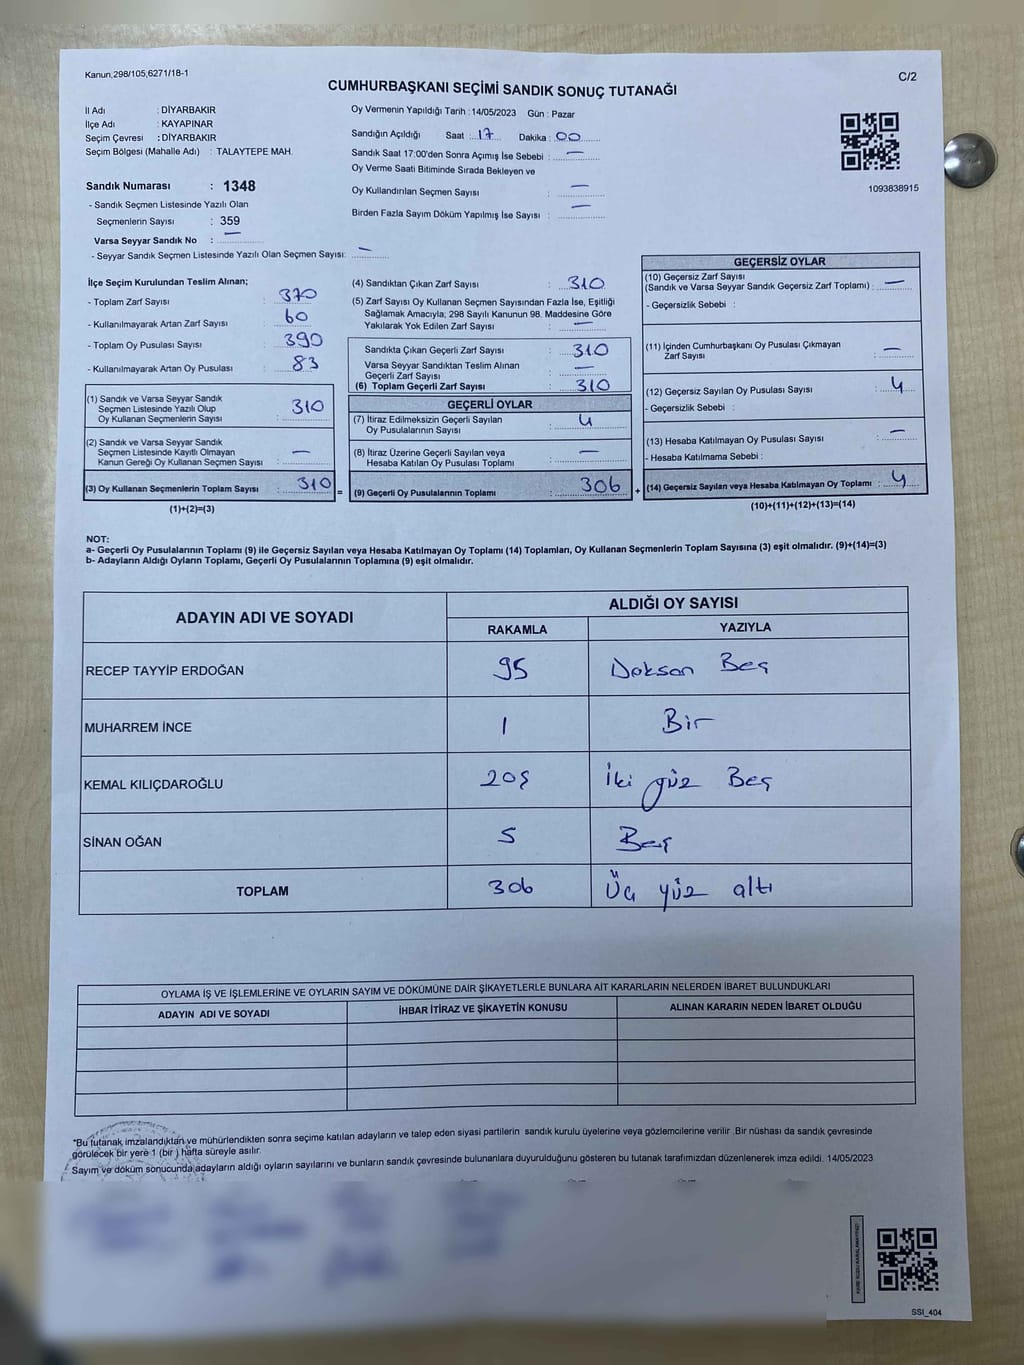 Kanun,298/105,6271/18-1
C/2
CUMHURBAŞKANI SEÇİMİ SANDIK SONUÇ TUTANAĞI
İl Adı : DİYARBAKIR
İlçe Adı : KAYAPINAR
Seçim Çevresi : DİYARBAKIR
Seçim Bölgesi (Mahalle Adı) : TALAYTEPE MAH.
Oy Vermenin Yapıldığı Tarih : 14/05/2023 Gün : Pazar
Sandığın Açıldığı Saat : 17 Dakika : 00
Sandık Saat 17:00'den Sonra Açımış İse Sebebi : —
Oy Verme Saati Bitiminde Sırada Bekleyen ve
Oy Kullandırılan Seçmen Sayısı : —
Birden Fazla Sayım Döküm Yapılmış İse Sayısı : —
1093838915
Sandık Numarası : 1348
- Sandık Seçmen Listesinde Yazılı Olan
Seçmenlerin Sayısı : 359
Varsa Seyyar Sandık No : —
- Seyyar Sandık Seçmen Listesinde Yazılı Olan Seçmen Sayısı: —
İlçe Seçim Kurulundan Teslim Alınan;
- Toplam Zarf Sayısı : 370
- Kullanılmayarak Artan Zarf Sayısı : 60
- Toplam Oy Pusulası Sayısı : 390
- Kullanılmayarak Artan Oy Pusulası : 83
(1) Sandık ve Varsa Seyyar Sandık
Seçmen Listesinde Yazılı Olup
Oy Kullanan Seçmenlerin Sayısı : 310
(2) Sandık ve Varsa Seyyar Sandık
Seçmen Listesinde Kayıtlı Olmayan
Kanun Gereği Oy Kullanan Seçmen Sayısı : —
(3) Oy Kullanan Seçmenlerin Toplam Sayısı : 310 =
(1)+(2)=(3)
(4) Sandıktan Çıkan Zarf Sayısı : 310
(5) Zarf Sayısı Oy Kullanan Seçmen Sayısından Fazla İse, Eşitliği
Sağlamak Amacıyla; 298 Sayılı Kanunun 98. Maddesine Göre
Yakılarak Yok Edilen Zarf Sayısı : —
Sandıkta Çıkan Geçerli Zarf Sayısı : 310
Varsa Seyyar Sandıktan Teslim Alınan
Geçerli Zarf Sayısı : —
(6) Toplam Geçerli Zarf Sayısı : 310
GEÇERLİ OYLAR
(7) İtiraz Edilmeksizin Geçerli Sayılan
Oy Pusulalarının Sayısı : 4
(8) İtiraz Üzerine Geçerli Sayılan veya
Hesaba Katılan Oy Pusulası Toplamı : —
(9) Geçerli Oy Pusulalarının Toplamı : 306 +
GEÇERSİZ OYLAR
(10) Geçersiz Zarf Sayısı
(Sandık ve Varsa Seyyar Sandık Geçersiz Zarf Toplamı) : —
- Geçersizlik Sebebi :
(11) İçinden Cumhurbaşkanı Oy Pusulası Çıkmayan
Zarf Sayısı : —
(12) Geçersiz Sayılan Oy Pusulası Sayısı : 4
- Geçersizlik Sebebi :
(13) Hesaba Katılmayan Oy Pusulası Sayısı : —
- Hesaba Katılmama Sebebi :
(14) Geçersiz Sayılan veya Hesaba Katılmayan Oy Toplamı : 4
(10)+(11)+(12)+(13)=(14)
NOT:
a- Geçerli Oy Pusulalarının Toplamı (9) ile Geçersiz Sayılan veya Hesaba Katılmayan Oy Toplamı (14) Toplamları, Oy Kullanan Seçmenlerin Toplam Sayısına (3) eşit olmalıdır. (9)+(14)=(3)
b- Adayların Aldığı Oyların Toplamı, Geçerli Oy Pusulalarının Toplamına (9) eşit olmalıdır.
ADAYIN ADI VE SOYADI ALDIĞI OY SAYISI
RAKAMLA YAZIYLA
RECEP TAYYİP ERDOĞAN 95 Doksan Beş
MUHARREM İNCE 1 Bir
KEMAL KILIÇDAROĞLU 205 İki yüz Beş
SİNAN OĞAN 5 Beş
TOPLAM 306 Üç yüz altı
OYLAMA İŞ VE İŞLEMLERİNE VE OYLARIN SAYIM VE DÖKÜMÜNE DAİR ŞİKAYETLERLE BUNLARA AİT KARARLARIN NELERDEN İBARET BULUNDUKLARI
ADAYIN ADI VE SOYADI İHBAR İTİRAZ VE ŞİKAYETİN KONUSU ALINAN KARARIN NEDEN İBARET OLDUĞU
*Bu tutanak imzalandıktan ve mühürlendikten sonra seçime katılan adayların ve talep eden siyasi partilerin sandık kurulu üyelerine veya gözlemcilerine verilir .Bir nüshası da sandık çevresinde
görülecek bir yere 1 (bir ) hafta süreyle asılır.
Sayım ve döküm sonucunda adayların aldığı oyların sayılarını ve bunların sandık çevresinde bulunanlara duyurulduğunu gösteren bu tutanak tarafımızdan düzenlenerek imza edildi. 14/05/2023
SSI_404